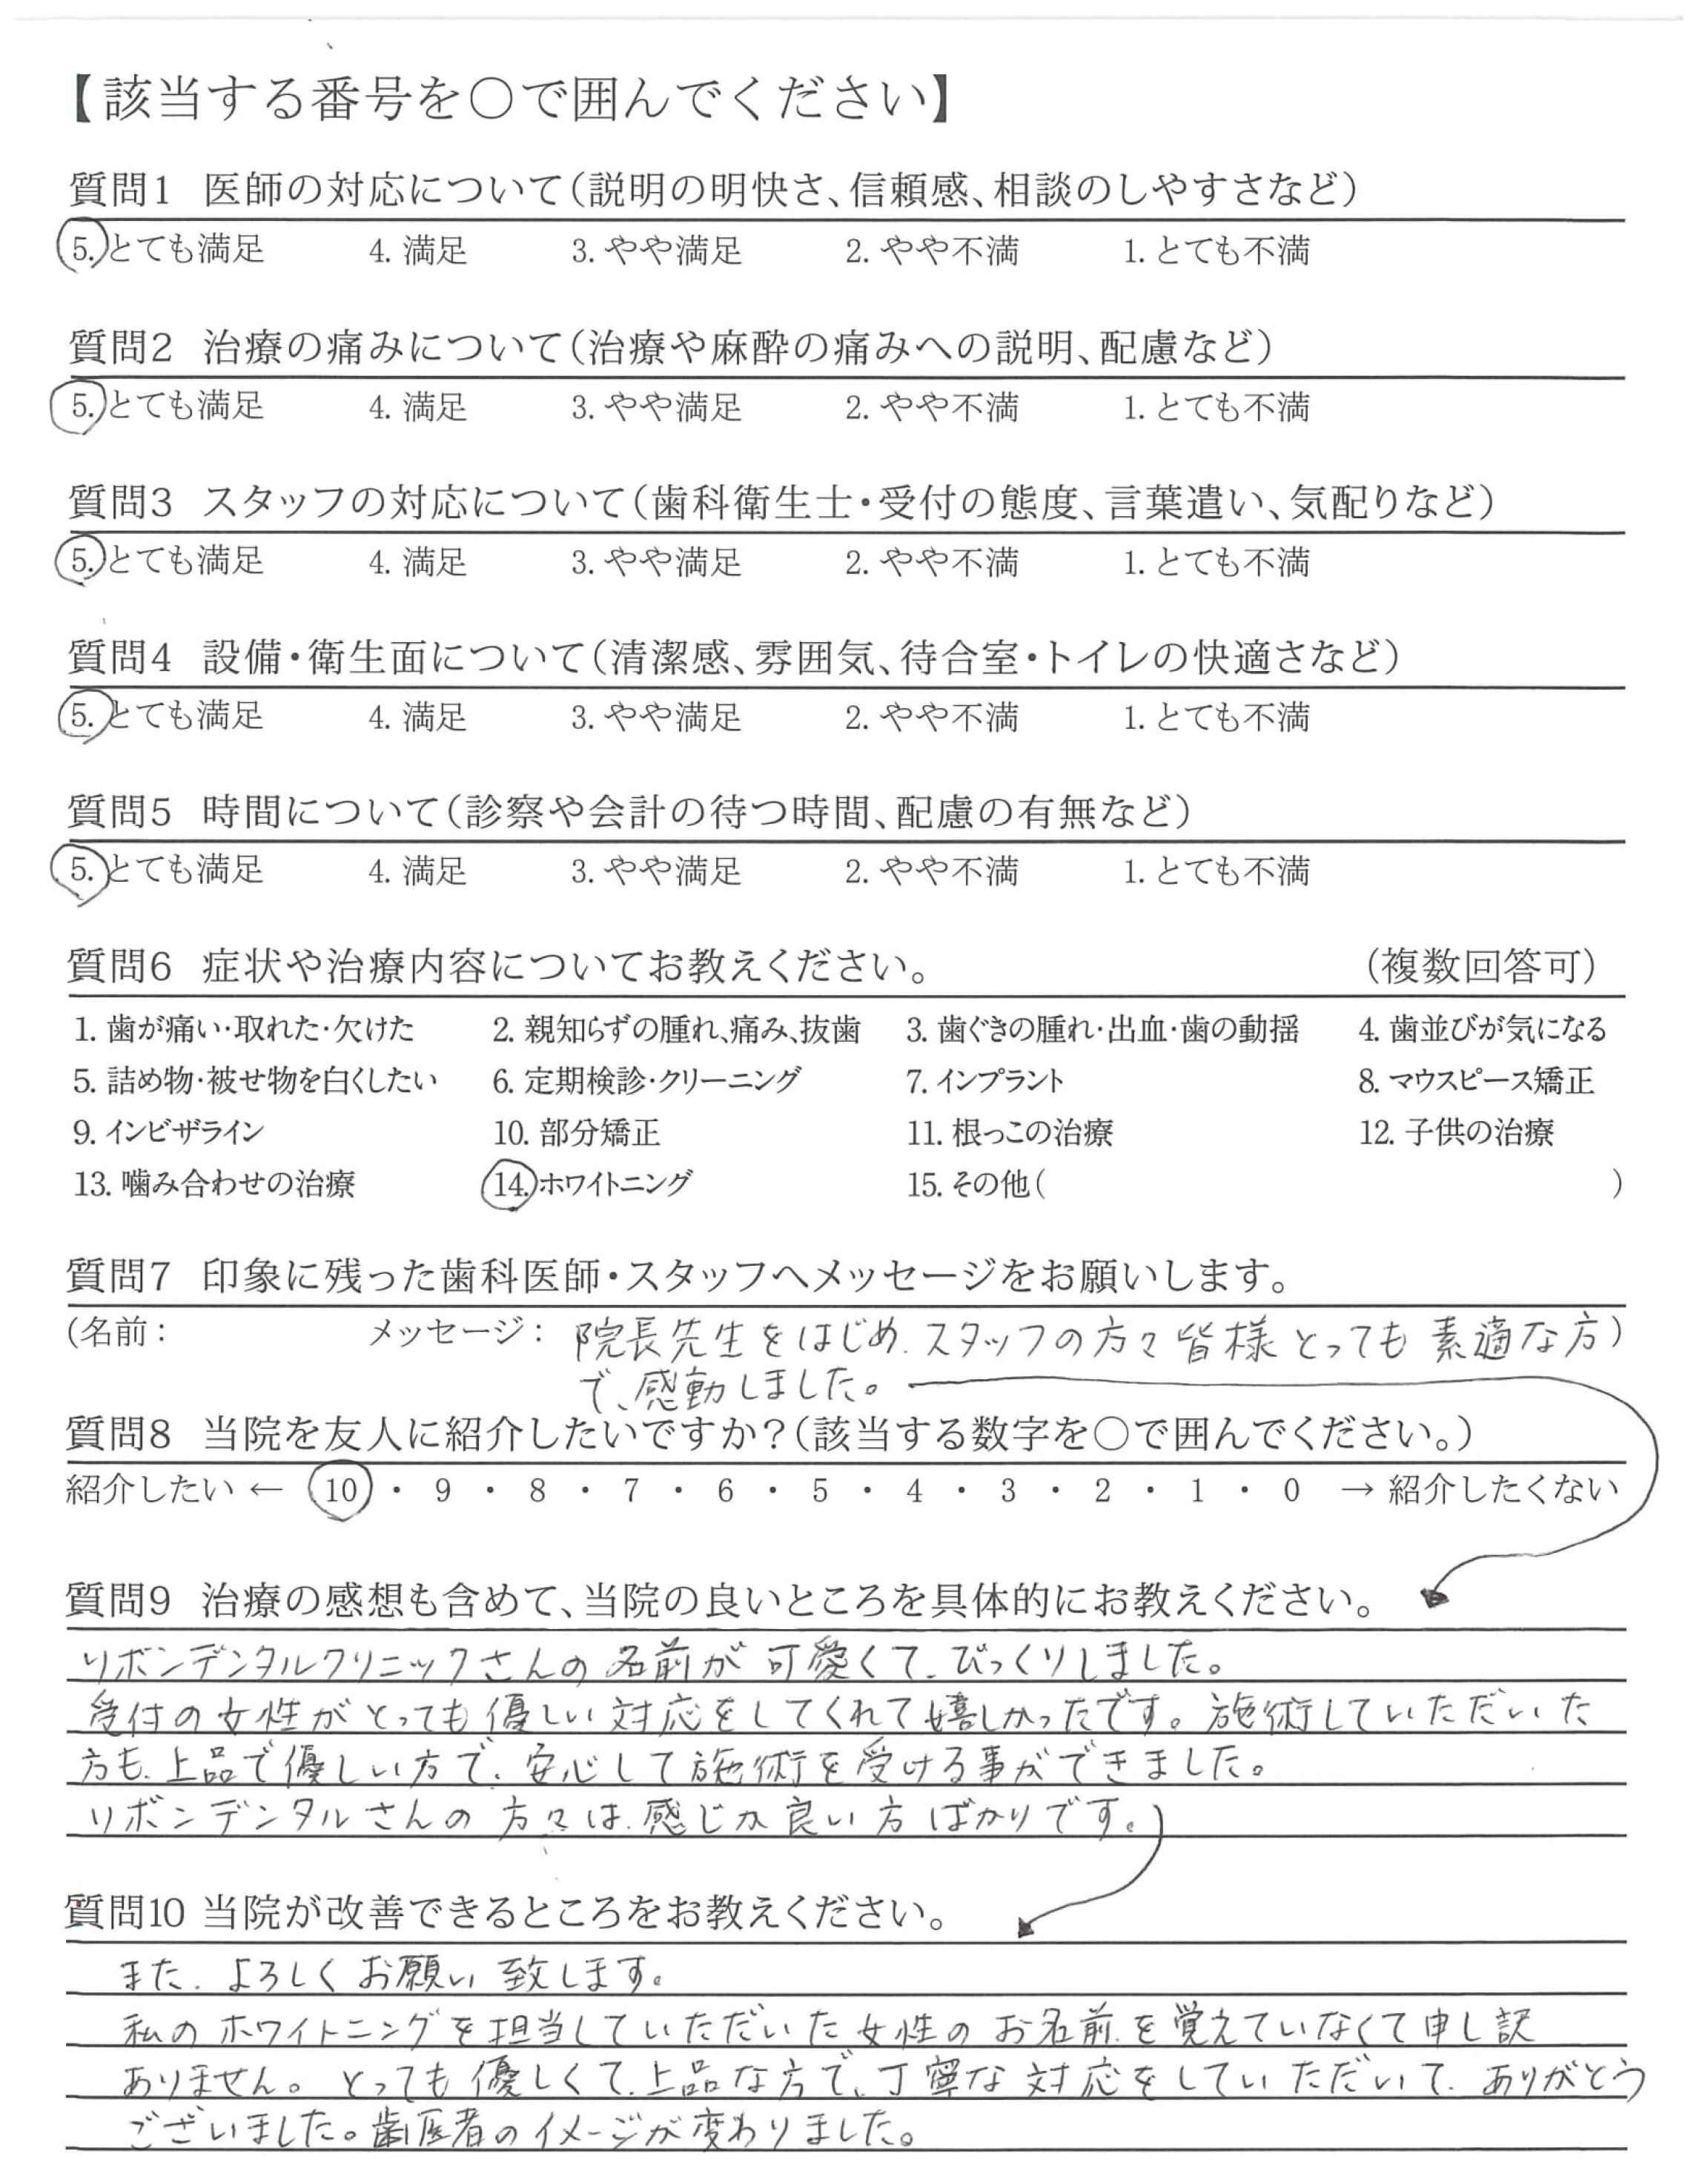 【該当する番号を○で囲んでください】
質問1 医師の対応について(説明の明快さ、信頼感、相談のしやすさなど)
5. とても満足 4. 満足 3. やや満足 2. やや不満 1. とても不満
質問2 治療の痛みについて(治療や麻酔の痛みへの説明、配慮など)
5. とても満足 4. 満足 3. やや満足 2. やや不満 1. とても不満
質問3 スタッフの対応について(歯科衛生士・受付の態度、言葉遣い、気配りなど)
5. とても満足 4. 満足 3. やや満足 2. やや不満 1. とても不満
質問4 設備・衛生面について(清潔感、雰囲気、待合室・トイレの快適さなど)
5. とても満足 4. 満足 3. やや満足 2. やや不満 1. とても不満
質問5 時間について(診察や会計の待つ時間、配慮の有無など)
5. とても満足 4. 満足 3. やや満足 2. やや不満 1. とても不満
質問6 症状や治療内容についてお教えください。 (複数回答可)
1. 歯が痛い・取れた・欠けた 2. 親知らずの腫れ、痛み、抜歯 3. 歯ぐきの腫れ・出血・歯の動揺 4. 歯並びが気になる
5. 詰め物・被せ物を白くしたい 6. 定期検診・クリーニング 7. インプラント 8. マウスピース矯正
9. インビザライン 10. 部分矯正 11. 根っこの治療 12. 子供の治療
13. 噛み合わせの治療 14. ホワイトニング 15. その他( )
質問7 印象に残った歯科医師・スタッフへメッセージをお願いします。
(名前: メッセージ: 院長先生をはじめ、スタッフの方々皆様とっても素適な方)
で、感動しました。
質問8 当院を友人に紹介したいですか?(該当する数字を○で囲んでください。)
紹介したい ← 10 ・ 9 ・ 8 ・ 7 ・ 6 ・ 5 ・ 4 ・ 3 ・ 2 ・ 1 ・ 0 → 紹介したくない
質問9 治療の感想も含めて、当院の良いところを具体的にお教えください。
リボンデンタルクリニックさんの名前が可愛くて、びっくりしました。
受付の女性がとっても優しい対応をしてくれて嬉しかったです。施術していただいた
方も、上品で優しい方で、安心して施術を受ける事ができました。
リボンデンタルさんの方々は、感じか良い方ばかりです。
質問10 当院が改善できるところをお教えください。
また、よろしくお願い致します。
私のホワイトニングを担当していただいた女性のお名前を覚えていなくて申し訳
ありません。とっても優しくて、上品な方で、丁寧な対応をしていただいて、ありがとう
ございました。歯医者のイメージが変わりました。